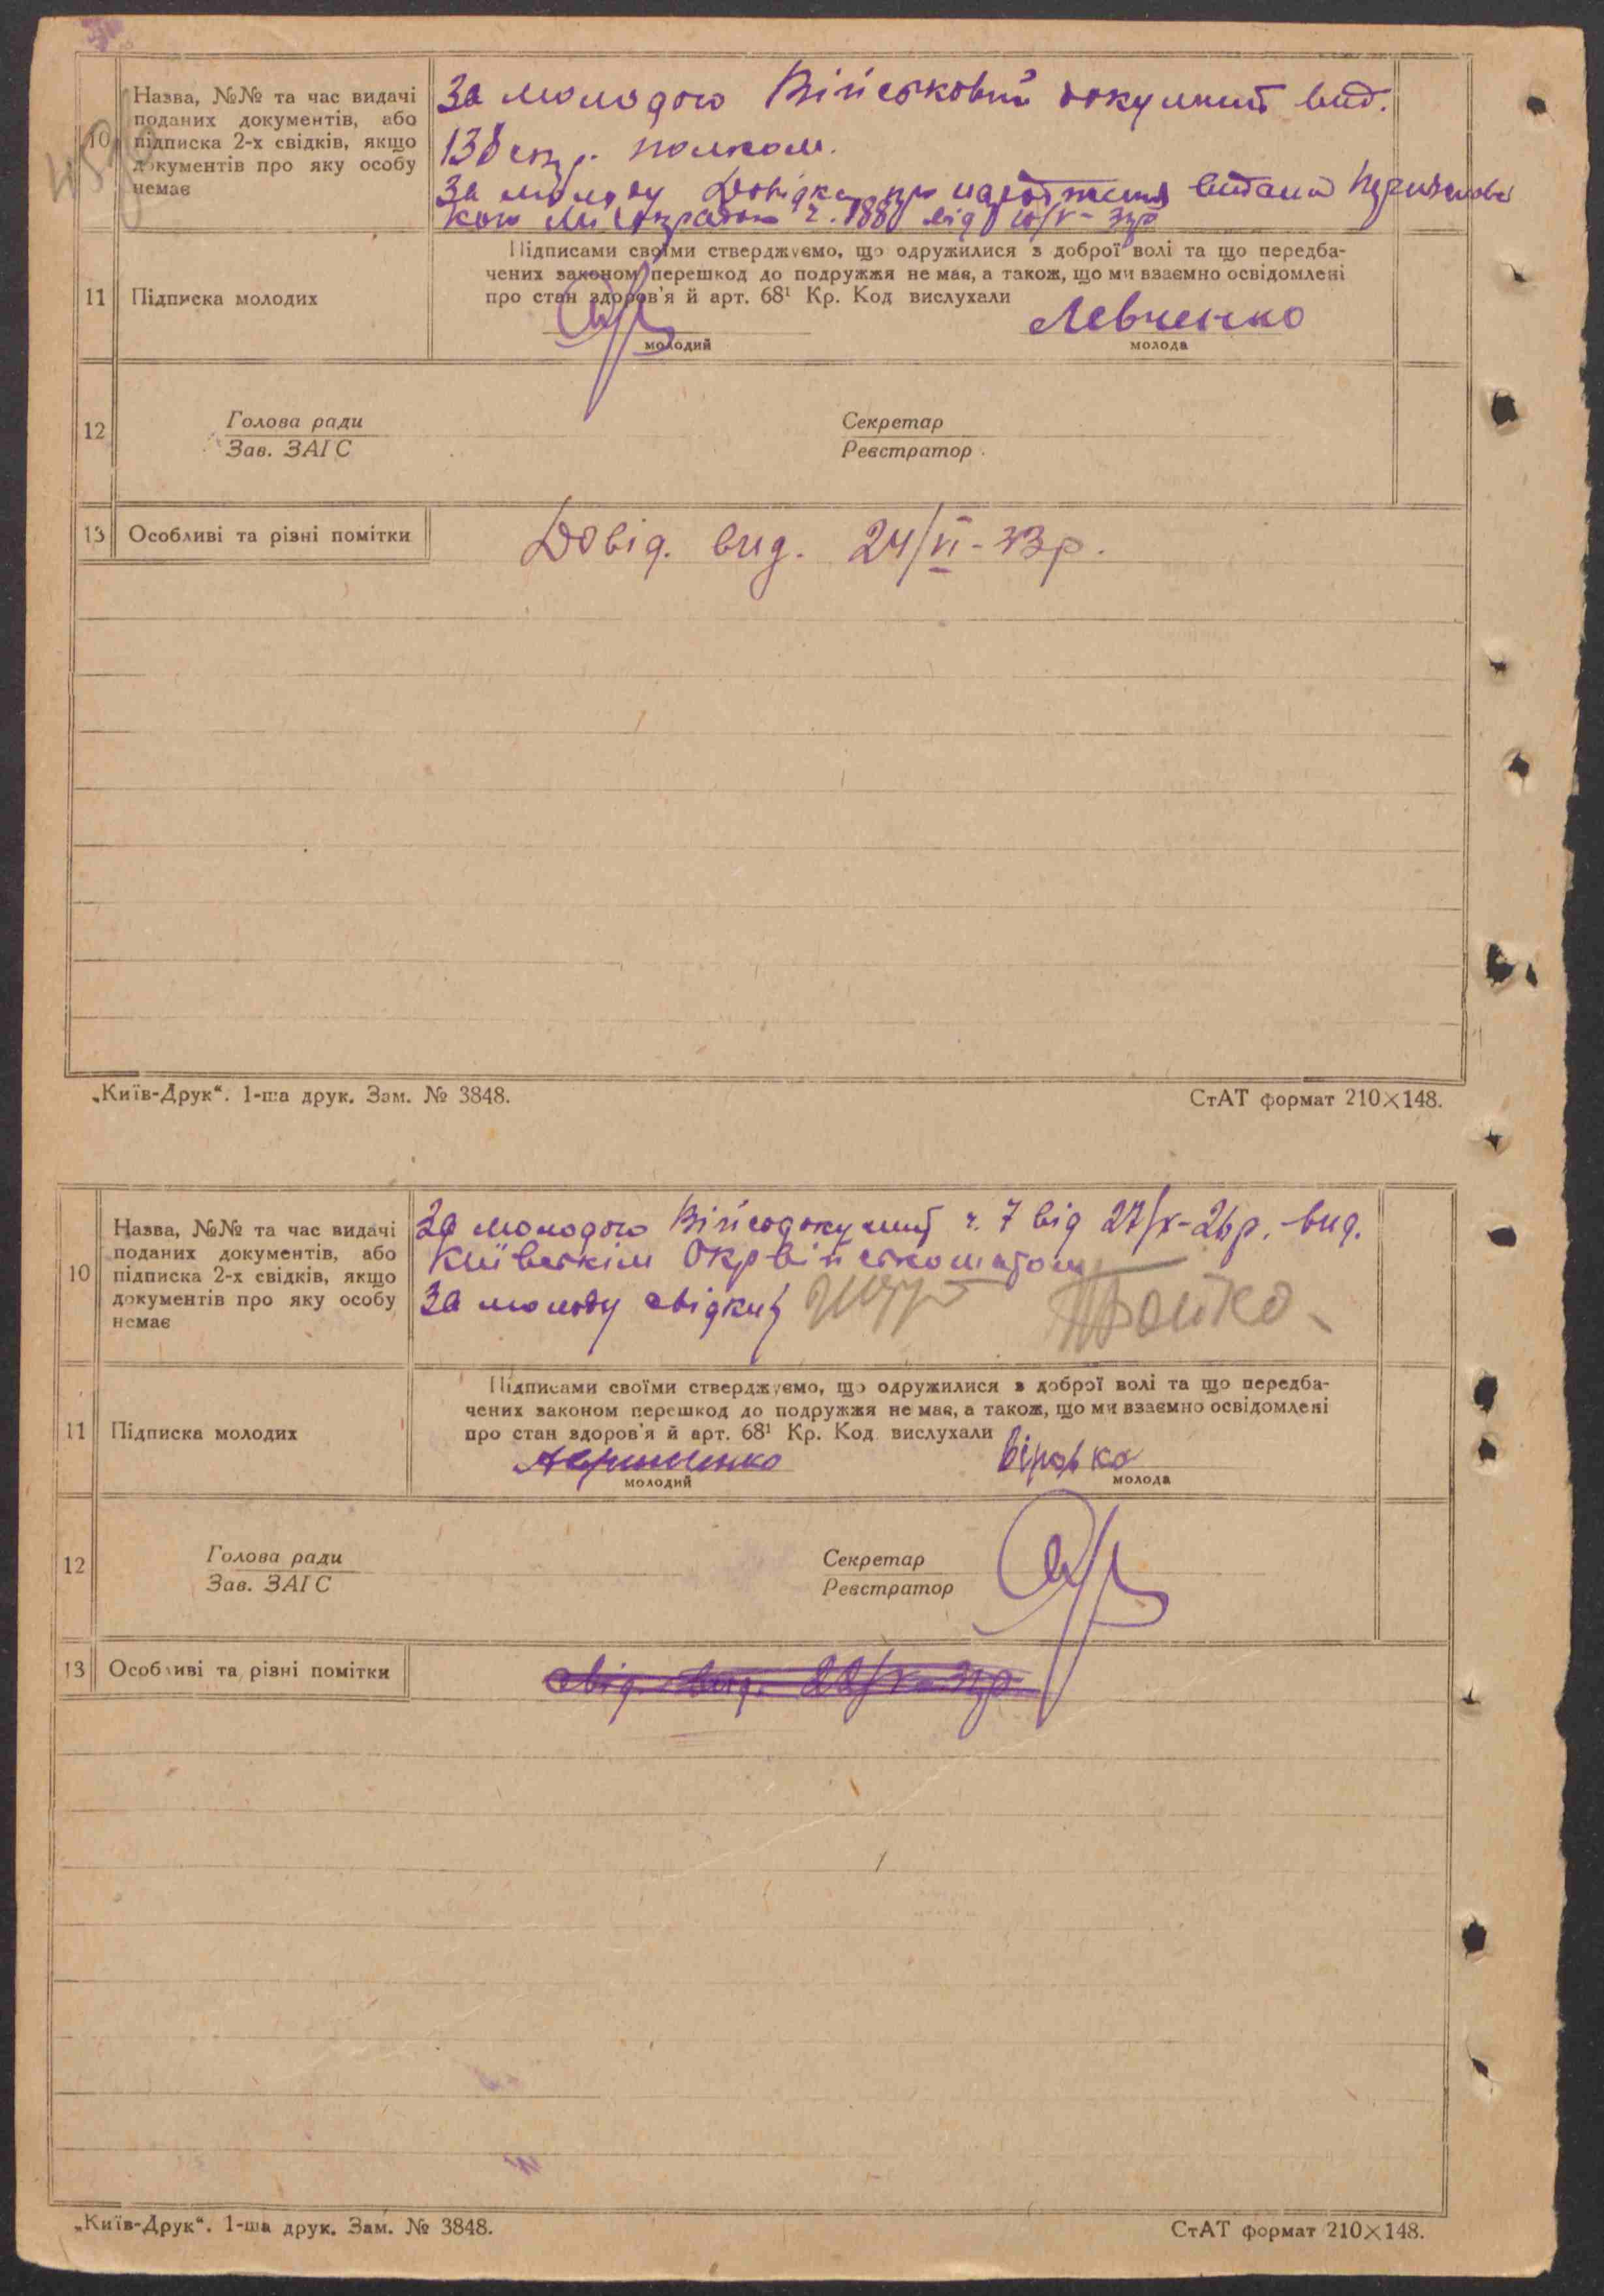 Назва, №№ та час видачі
поданих документів, або
10 підписка 2-х свідків, якщо
документів про яку особу
немає
За молодого Військовий документ вид.
138 стр. полком.
За молоду Довідка про народження видана
міськрадою ч. 188 від 10/V-33р
Підписами своїми стверджуємо, що одружилися з доброї волі та що передба-
чених законом перешкод до подружжя не має, а також, що ми взаємно освідомлені
про стан здоров'я й арт. 68¹ Кр. Код вислухали
11 Підписка молодих
Левченко
молодий молода
12 Голова ради Секретар
Зав. ЗАГС Реєстратор
13 Особливі та різні помітки Довід. вид. 24/VI-33р.
„Київ-Друк“. 1-ша друк. Зам. № 3848. СтАТ формат 210×148.
Назва, №№ та час видачі
поданих документів, або
10 підписка 2-х свідків, якщо
документів про яку особу
немає
За молодого Військдокумент ч. 7 від 27/X-26р. вид.
Київським Окрвійськоматом
За молоду свідки Бойко
Підписами своїми стверджуємо, що одружилися з доброї волі та що передба-
чених законом перешкод до подружжя не має, а також, що ми взаємно освідомлені
про стан здоров'я й арт. 68¹ Кр. Код вислухали
11 Підписка молодих
молодий молода
12 Голова ради Секретар
Зав. ЗАГС Реєстратор
13 Особливі та різні помітки
„Київ-Друк“. 1-ша друк. Зам. № 3848. СтАТ формат 210×148.